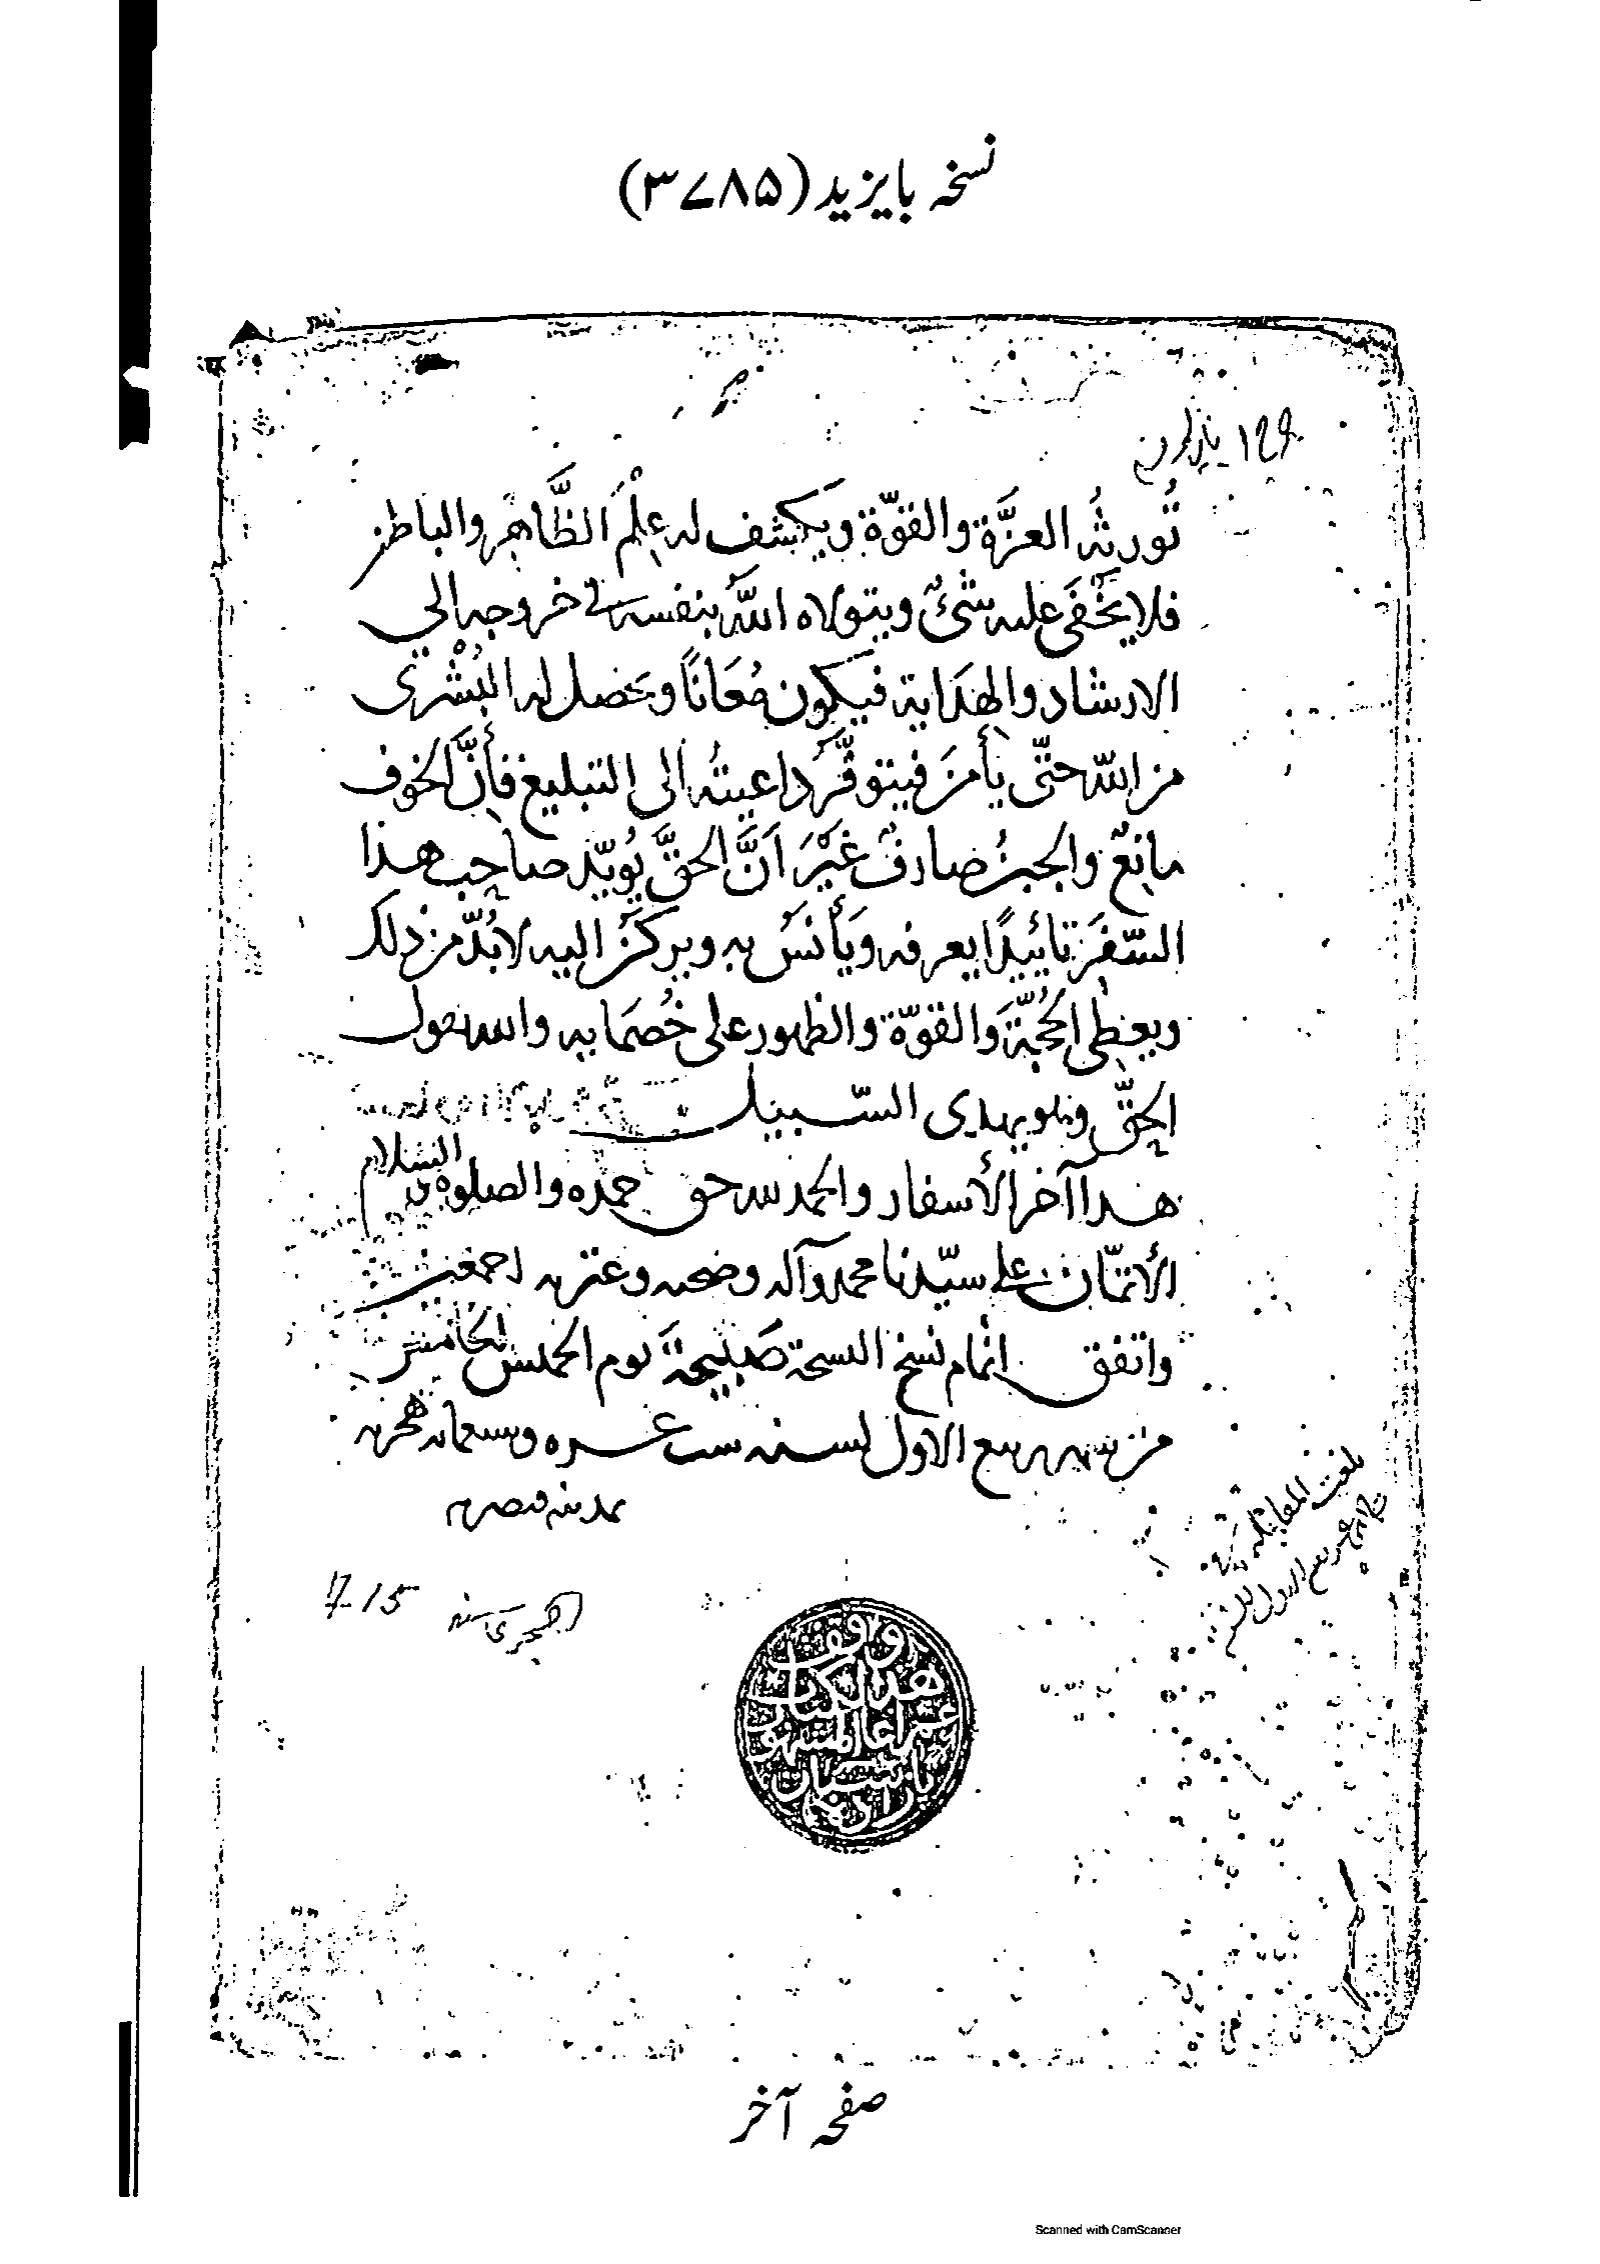 نسخہ بایزید (۳۷۸۵)
تُورثُه العزَّة والقوّة ويكشف له عِلْمَ الظَّاهِر والباطن
فلا يَخْفَى عليه شئٌ ويتولاه اللّه بنفسه في خروجه إلي
الارشاد والهدَاية فيكون مُعَانًا وتحصل له البُشْرى
من اللّه حتّى يأمنَ فيتوفَّرَ داعيتُه الى التبليغ فأِنَّ الخوف
مانعٌ والجبنُ صارفٌ غَيْرَ اَنَّ الحقَّ يُويّد صاحِب هذا
السّفَر تائيدًا يعرفه ويَأنسُ به ويركنَ اليه لابُدّ من ذلك
ويعطى الحُجّةَ والقوّة والظهور على خُصَمايه والله يقول
الحقَّ وهو يهدى السّبيل
هذا آخر الأسفار والحمد لله حق حمده والصلوة والسلام
الأتمّان على سيّدنا محمد وآله وصحبه وعترته اجمعين
واتفق اتمام نسخ النسخة صَبيحَة يوم الخميس الخامس
من شهر ربيع الاول لسنه ست عشره وسبعمايه هجريه
بمدينه قيصريه
بلغت المقابلة
وقف
هذا الكتاب
صفحہ آخر
Scanned with CamScanner